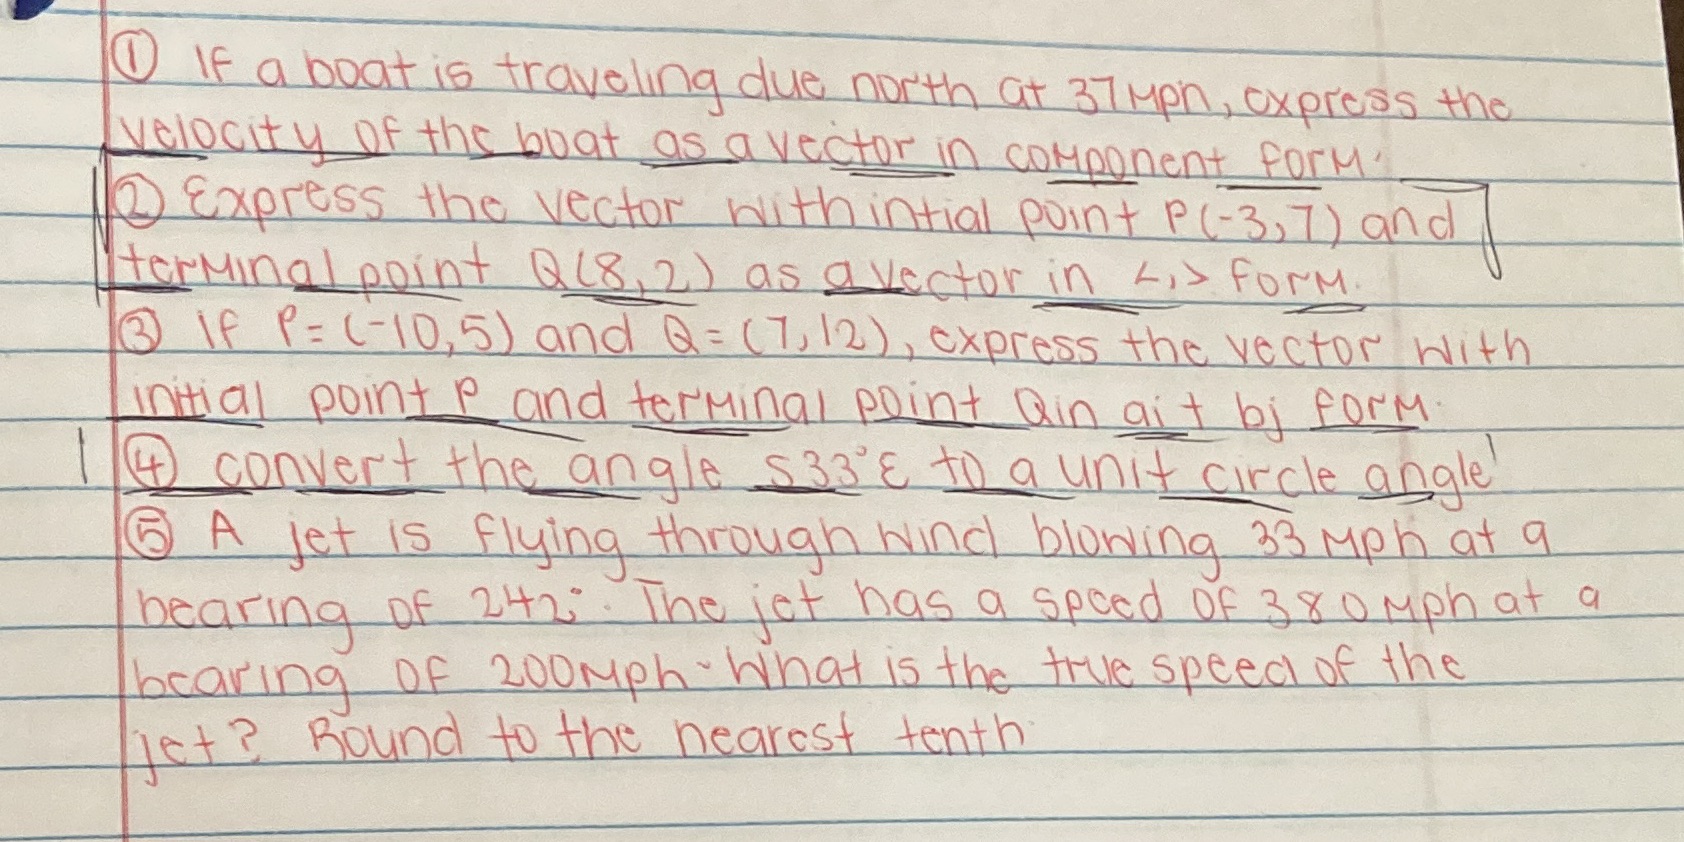 ① If a boat is traveling due north at 37 Mph, express the
velocity of the boat as a vector in component form.
② Express the vector with intial point P(-3,7) and
terminal point Q(8,2) as a vector in <,> form.
③ If P=(-10,5) and Q=(7,12), express the vector with
initial point P and terminal point Q in ai + bj form.
④ convert the angle S33°E to a unit circle angle
⑤ A jet is flying through wind blowing 33 Mph at a
bearing of 242°. The jet has a speed of 380 Mph at a
bearing of 200Mph. What is the true speed of the
jet? Round to the nearest tenth.